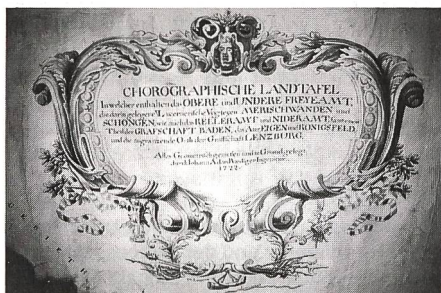 CHOROGRAPHISCHE LANDTAFEL
In welcher enthalten das OBERE und UNDERE FREYE AMT,
die darin gelegene Lucernerische Vogteyen MERISCHWANDEN und
SCHONGEN, wie auch das KELLERAMT und NIDERAMT, samt einem
Theil der GRAFSCHAFT BADEN, das Amt EIGEN und KÖNIGSFELD,
und die angrenzende Orth der Graffschaft LENZBURG,
Alles Geometrisch und in Grund gelegt,
durch Johann Adam Ingenieur
1722